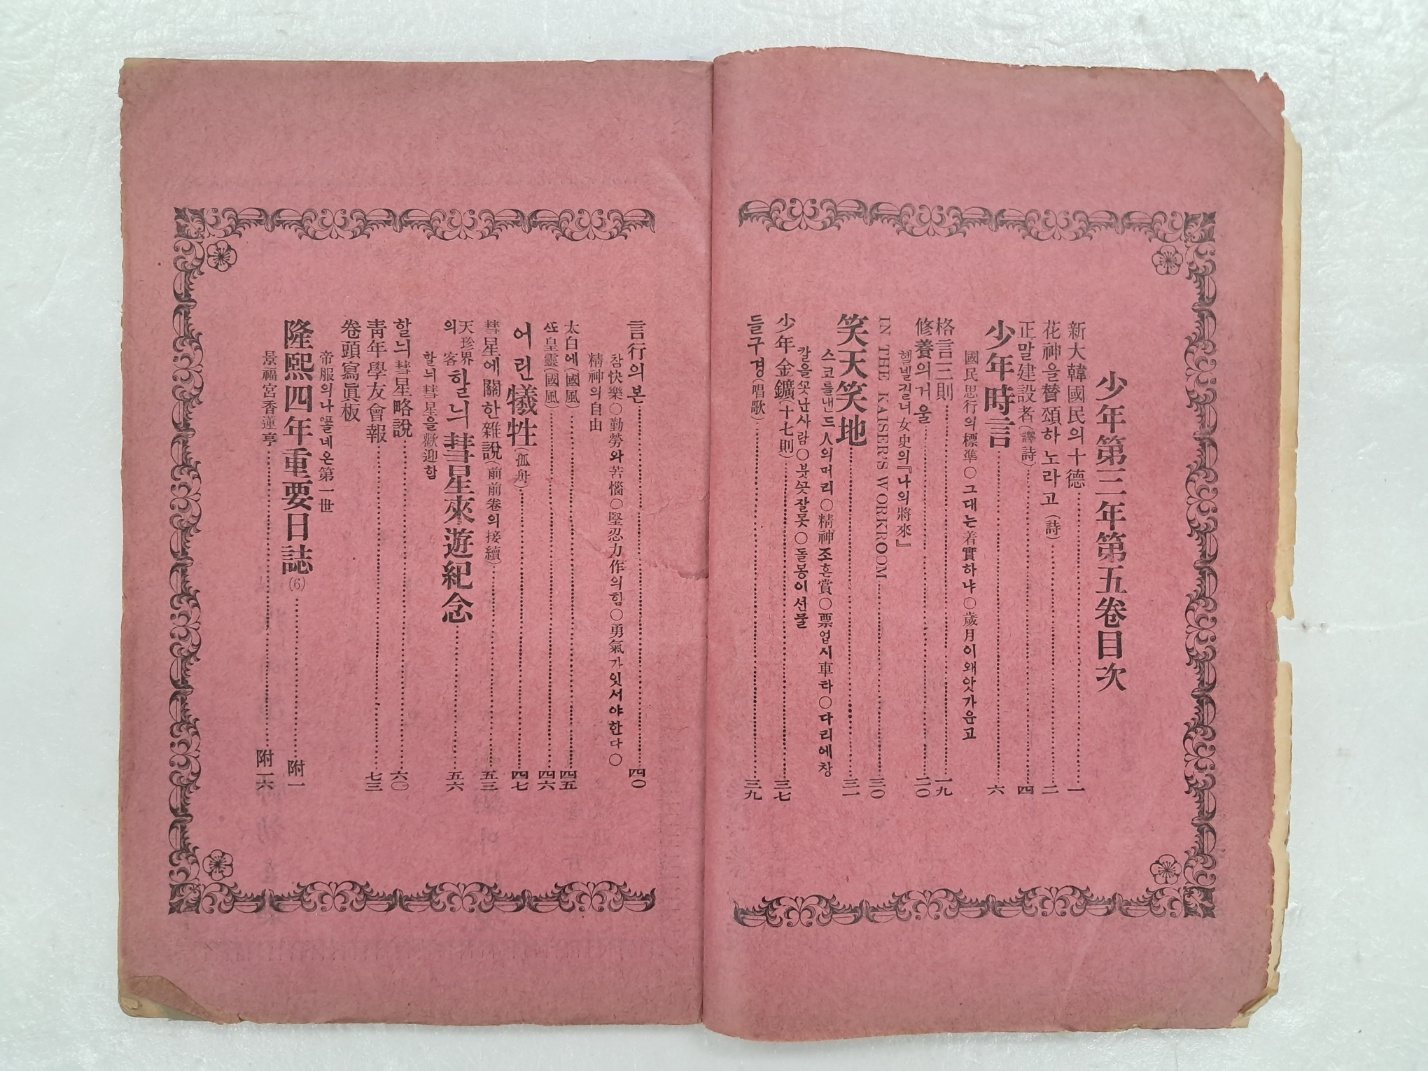 少年第三年第五卷目次
新大韓國民의十德 一
花神을讚頌하노라고(詩) 二
正말建設者(譯詩) 四
少年時言 六
國民思行의標準○그대는着實하냐○歲月이왜앗가운고
格言三則 一九
修養의거울 二〇
헬넬길너女史의『나의將來』
IN THE KAISER'S WORKROOM 三〇
笑天笑地 三一
스코틀낸드人의머리○精神조흔賞○票업시車라○다리에창
칼을못난사람○붓못잘못○돌몽이선물
少年金鑛(十七則) 三七
들구경(唱歌) 三九
言行의본 四〇
참快樂○勤勞와苦惱○堅忍力作의힘○勇氣가잇서야한다○
精神의自由
太白에(國風) 四五
또皇靈(國風) 四六
어린犧牲(孤舟) 四七
彗星에關한雜說(前前卷의接續) 五三
天珍界의客할늬彗星來遊紀念 五六
할늬彗星을歡迎함
할늬彗星略說 六〇
靑年學友會報 七三
卷頭寫眞板
帝服의나폴네온第一世
隆熙四年重要日誌(6) 附一
景福宮香蓮亭 附一六